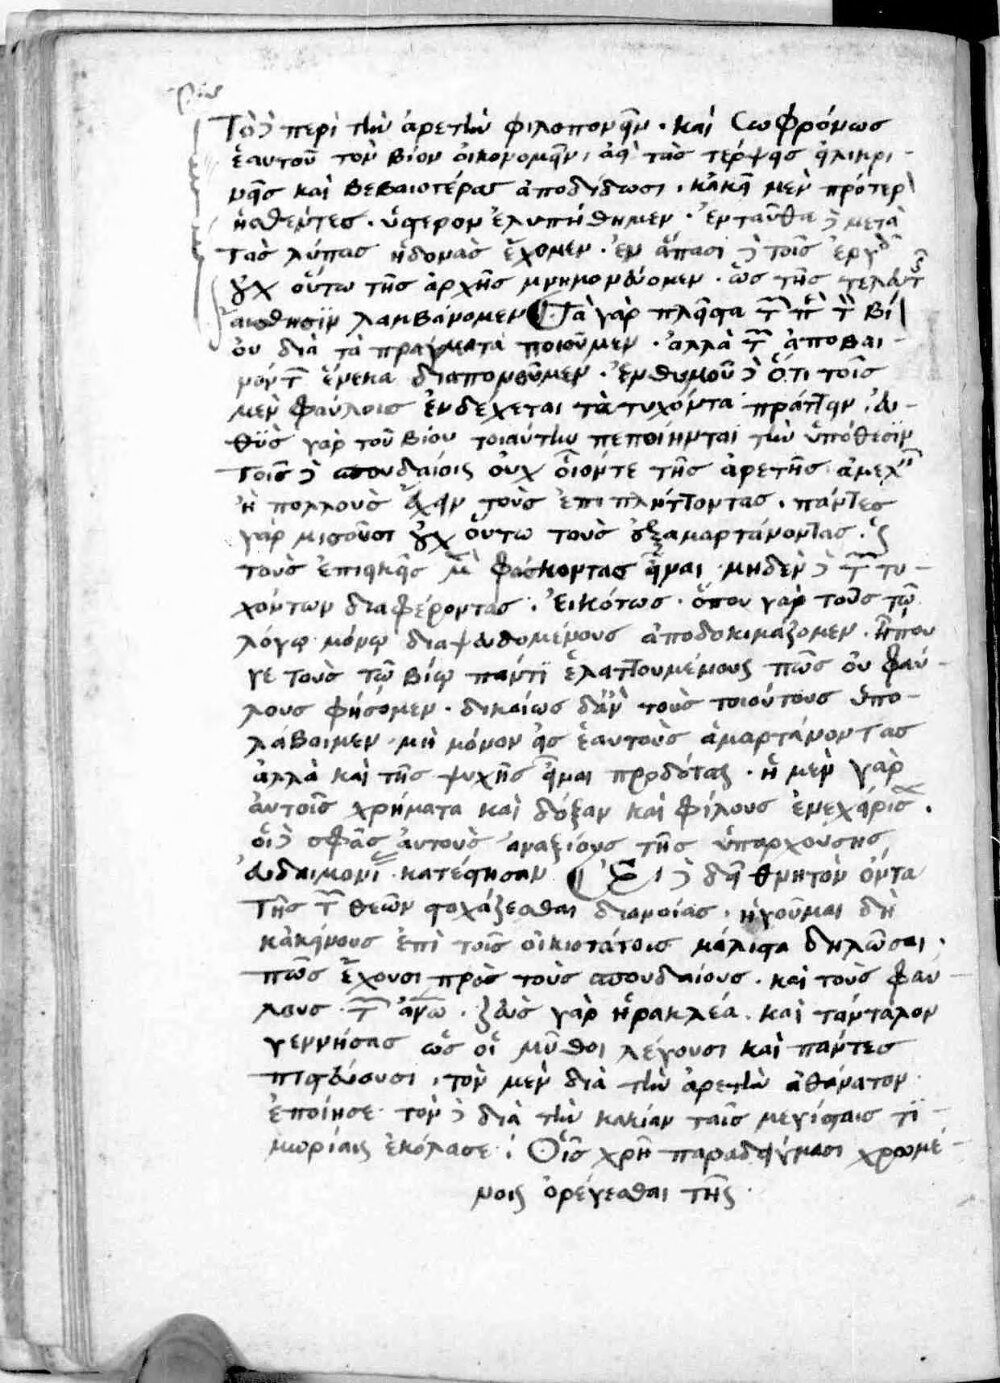 Τὸ δὲ περὶ τὴν ἀρετὴν φιλοπονεῖν · καὶ Σωφρόνως
ἑαυτοῦ τὸν βίον οἰκονομεῖν, ἀεὶ τὰς τέρψεις εἰλικρι-
νεῖς καὶ βεβαιοτέρας ἀποδίδωσι · κἀκεῖ μὲν πρότερον
ἡσθέντες · ὕστερον ἐλυπήθημεν · ἐνταῦθα δὲ μετὰ
τὰς λύπας ἡδονὰς ἔχομεν · ἐν ἅπασι δὲ τοῖς ἔργοις
οὐχ οὕτω τῆς ἀρχῆς μνημονεύομεν · ὡς τῆς τελευτῆς
αἴσθησϊν λαμβάνομεν Τὰ γὰρ πλεῖστα τῶν περὶ τὸν βί
ου διὰ τὰ πράγματα ποιοῦμεν · ἀλλὰ τῶν ἀποβαι-
νόντων ἕνεκα διαπονοῦμεν · ἐνθυμοῦ δὲ ὅτι τοῖς
μὲν φαύλοις ἐνδέχεται τὰ τυχόντα πράττειν · εὐ-
θὺς γὰρ τοῦ βίου τοιαύτην πεποίηνται τὴν ὑπόθεσϊν
τοῖς δὲ σπουδαίοις οὐχ οἷόντε τῆς ἀρετῆς ἀμελεῖν
ἢ πολλοὺς ἔχειν τοὺς ἐπιπλήττοντας · πάντες
γὰρ μισοῦσι οὐχ οὕτω τοὺς ἐξαμαρτάνοντας · ὡς
τοὺς ἐπιεικεῖς μὲν φάσκοντας εἶναι · μηδὲν δὲ τῶν τυ-
χόντων διαφέροντας · Εἰκότως · ὅπου γὰρ τοὺς τῷ
λόγῳ μόνῳ διαψευδομένους ἀποδοκιμάζομεν · ἦπου
γε τοὺς τῷ βίῳ παντὶ ἐλαττουμένους πῶς οὐ φαύ-
λους φήσομεν · δικαίως δ' ἂν τοὺς τοιούτους ὑπο-
λάβοιμεν · μὴ μόνον εἰς ἑαυτοὺς ἁμαρτάνοντας
ἀλλὰ καὶ τῆς ψυχῆς εἶναι προδότας · ἡ μὲν γὰρ
αὐτοῖς χρήματα καὶ δόξαν καὶ φίλους ἐνεχείρισε ·
οἱ δὲ σφᾶς αὐτοὺς ἀναξίους τῆς ὑπαρχούσης
εὐδαιμονίας · κατέστησαν Εἰ δὲ δεῖ θνητὸν ὄντα
τῆς τῶν θεῶν στοχάζεσθαι διανοίας · ἡγοῦμαι δὴ
κἀκείνους ἐπὶ τοῖς οἰκιοτάτοις μάλιστα δηλῶσαι ·
πῶς ἔχουσι πρὸς τοὺς σπουδαίους · καὶ τοὺς φαύ-
λους τῶν ἀνθρώπων · ζεὺς γὰρ ἡρακλέα · καὶ τάνταλον
γεννήσας ὡς οἱ μῦθοι λέγουσι καὶ πάντες
πιστεύουσι · τὸν μὲν διὰ τὴν ἀρετὴν ἀθάνατον
ἐποίησε · τὸν δὲ διὰ τὴν κακίαν ταῖς μεγίσταις τι-
μωρίαις ἐκόλασε · Οἷς χρὴ παραδείγμασι χρωμέ-
νοις ὀρέγεσθαι τῆς ·